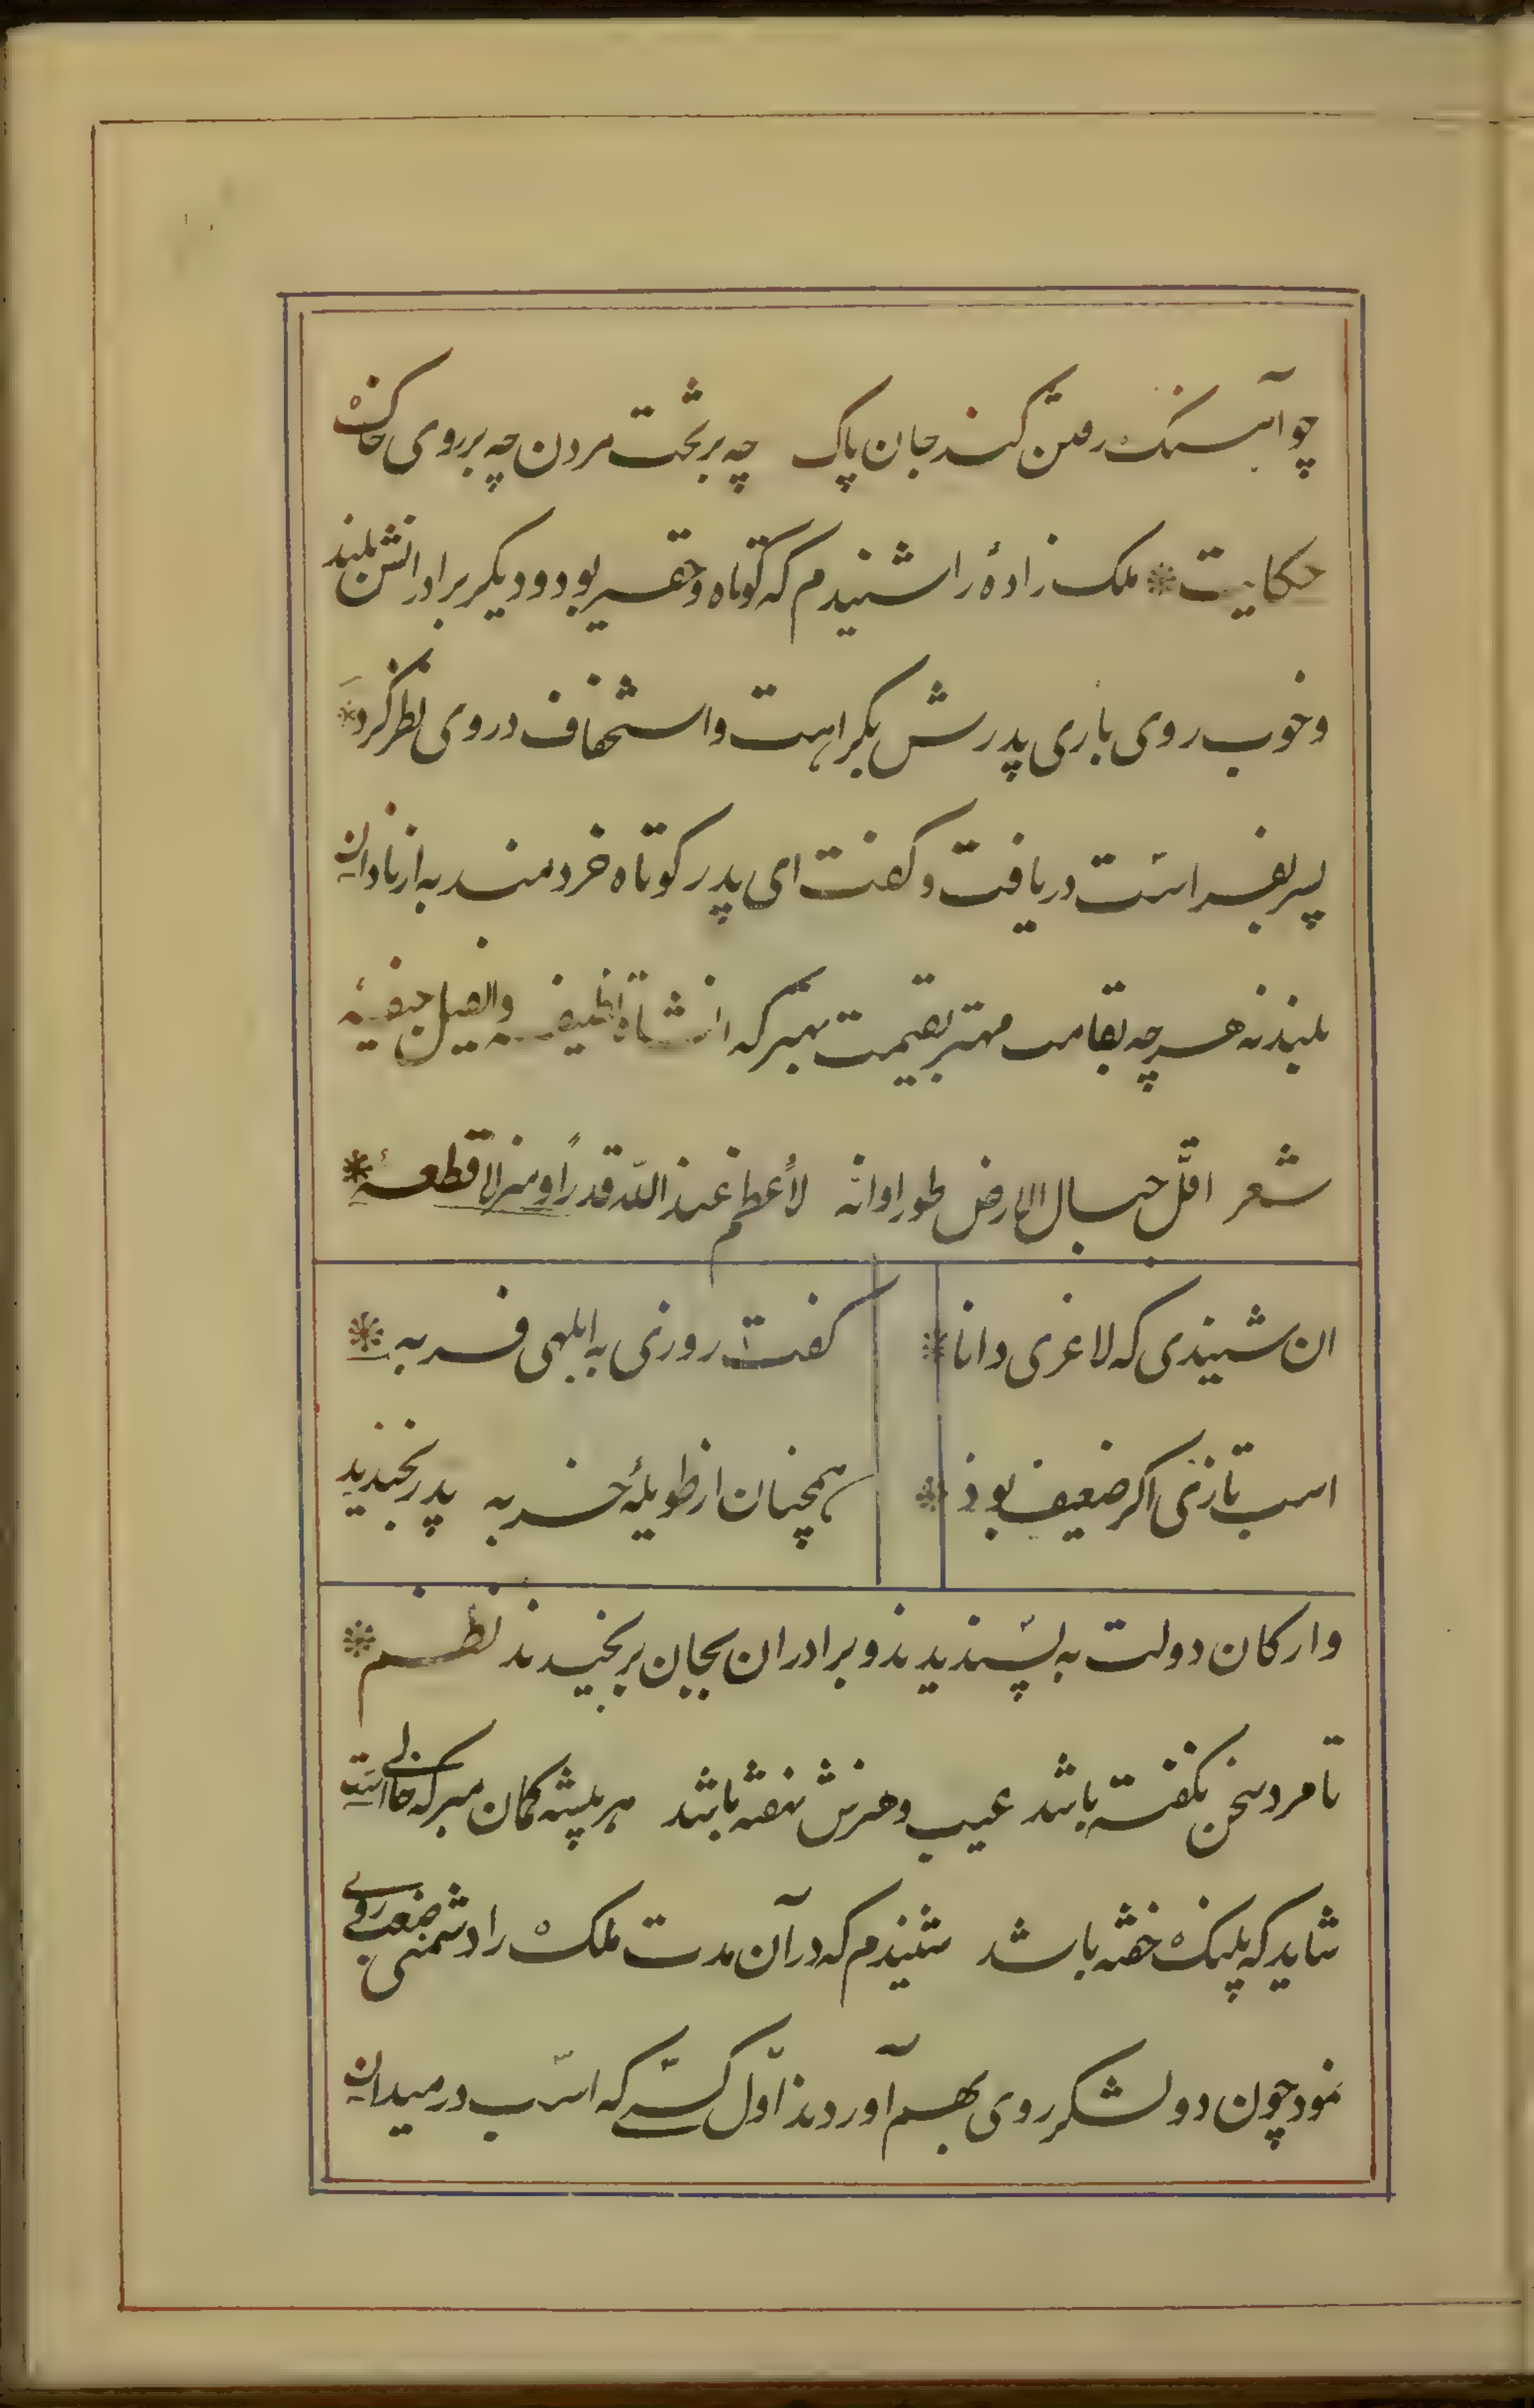 چو آهنک رفتن کند جان پاک چه بر تخت مردن چه بر روی خاک
حکایت * ملک زادۀ را شنیدم که کوتاه و حقیر بود و دیکر برادرانش بلند
و خوب روی باری پدرش بکراهت و استخفاف در وی نظر کرد *
پسر بفراست دریافت و کفت ای پدر کوتاه خردمند به از نادان
بلند نه هر چه بقامت مهتر بقیمت بهتر که الشاة نظیفه والفیل جیفه
شعر اقلّ جبال الارض طور اوانه لأعظم عند الله قدرًا ومنزلا قطعه *
ان شنیدی که لاغری دانا * کفت روزی به ابلهی فربه *
اسب تازی اکر ضعیف بوذ * همچنان از طویلۀ خر به پدر بخندید
و ارکان دولت به پسندیدند و برادران بجان برنجیدند نظم *
تا مرد سخن نکفته باشد عیب و هنرش نهفته باشد هر پیشه کمان مبر که خالی است
شاید که پلنک خفته باشد شنیدم که در آن مدت ملک را دشمنی صعب روی
نمود چون دو لشکر روی بهم آوردند اوّل کسی که اسب در میدان